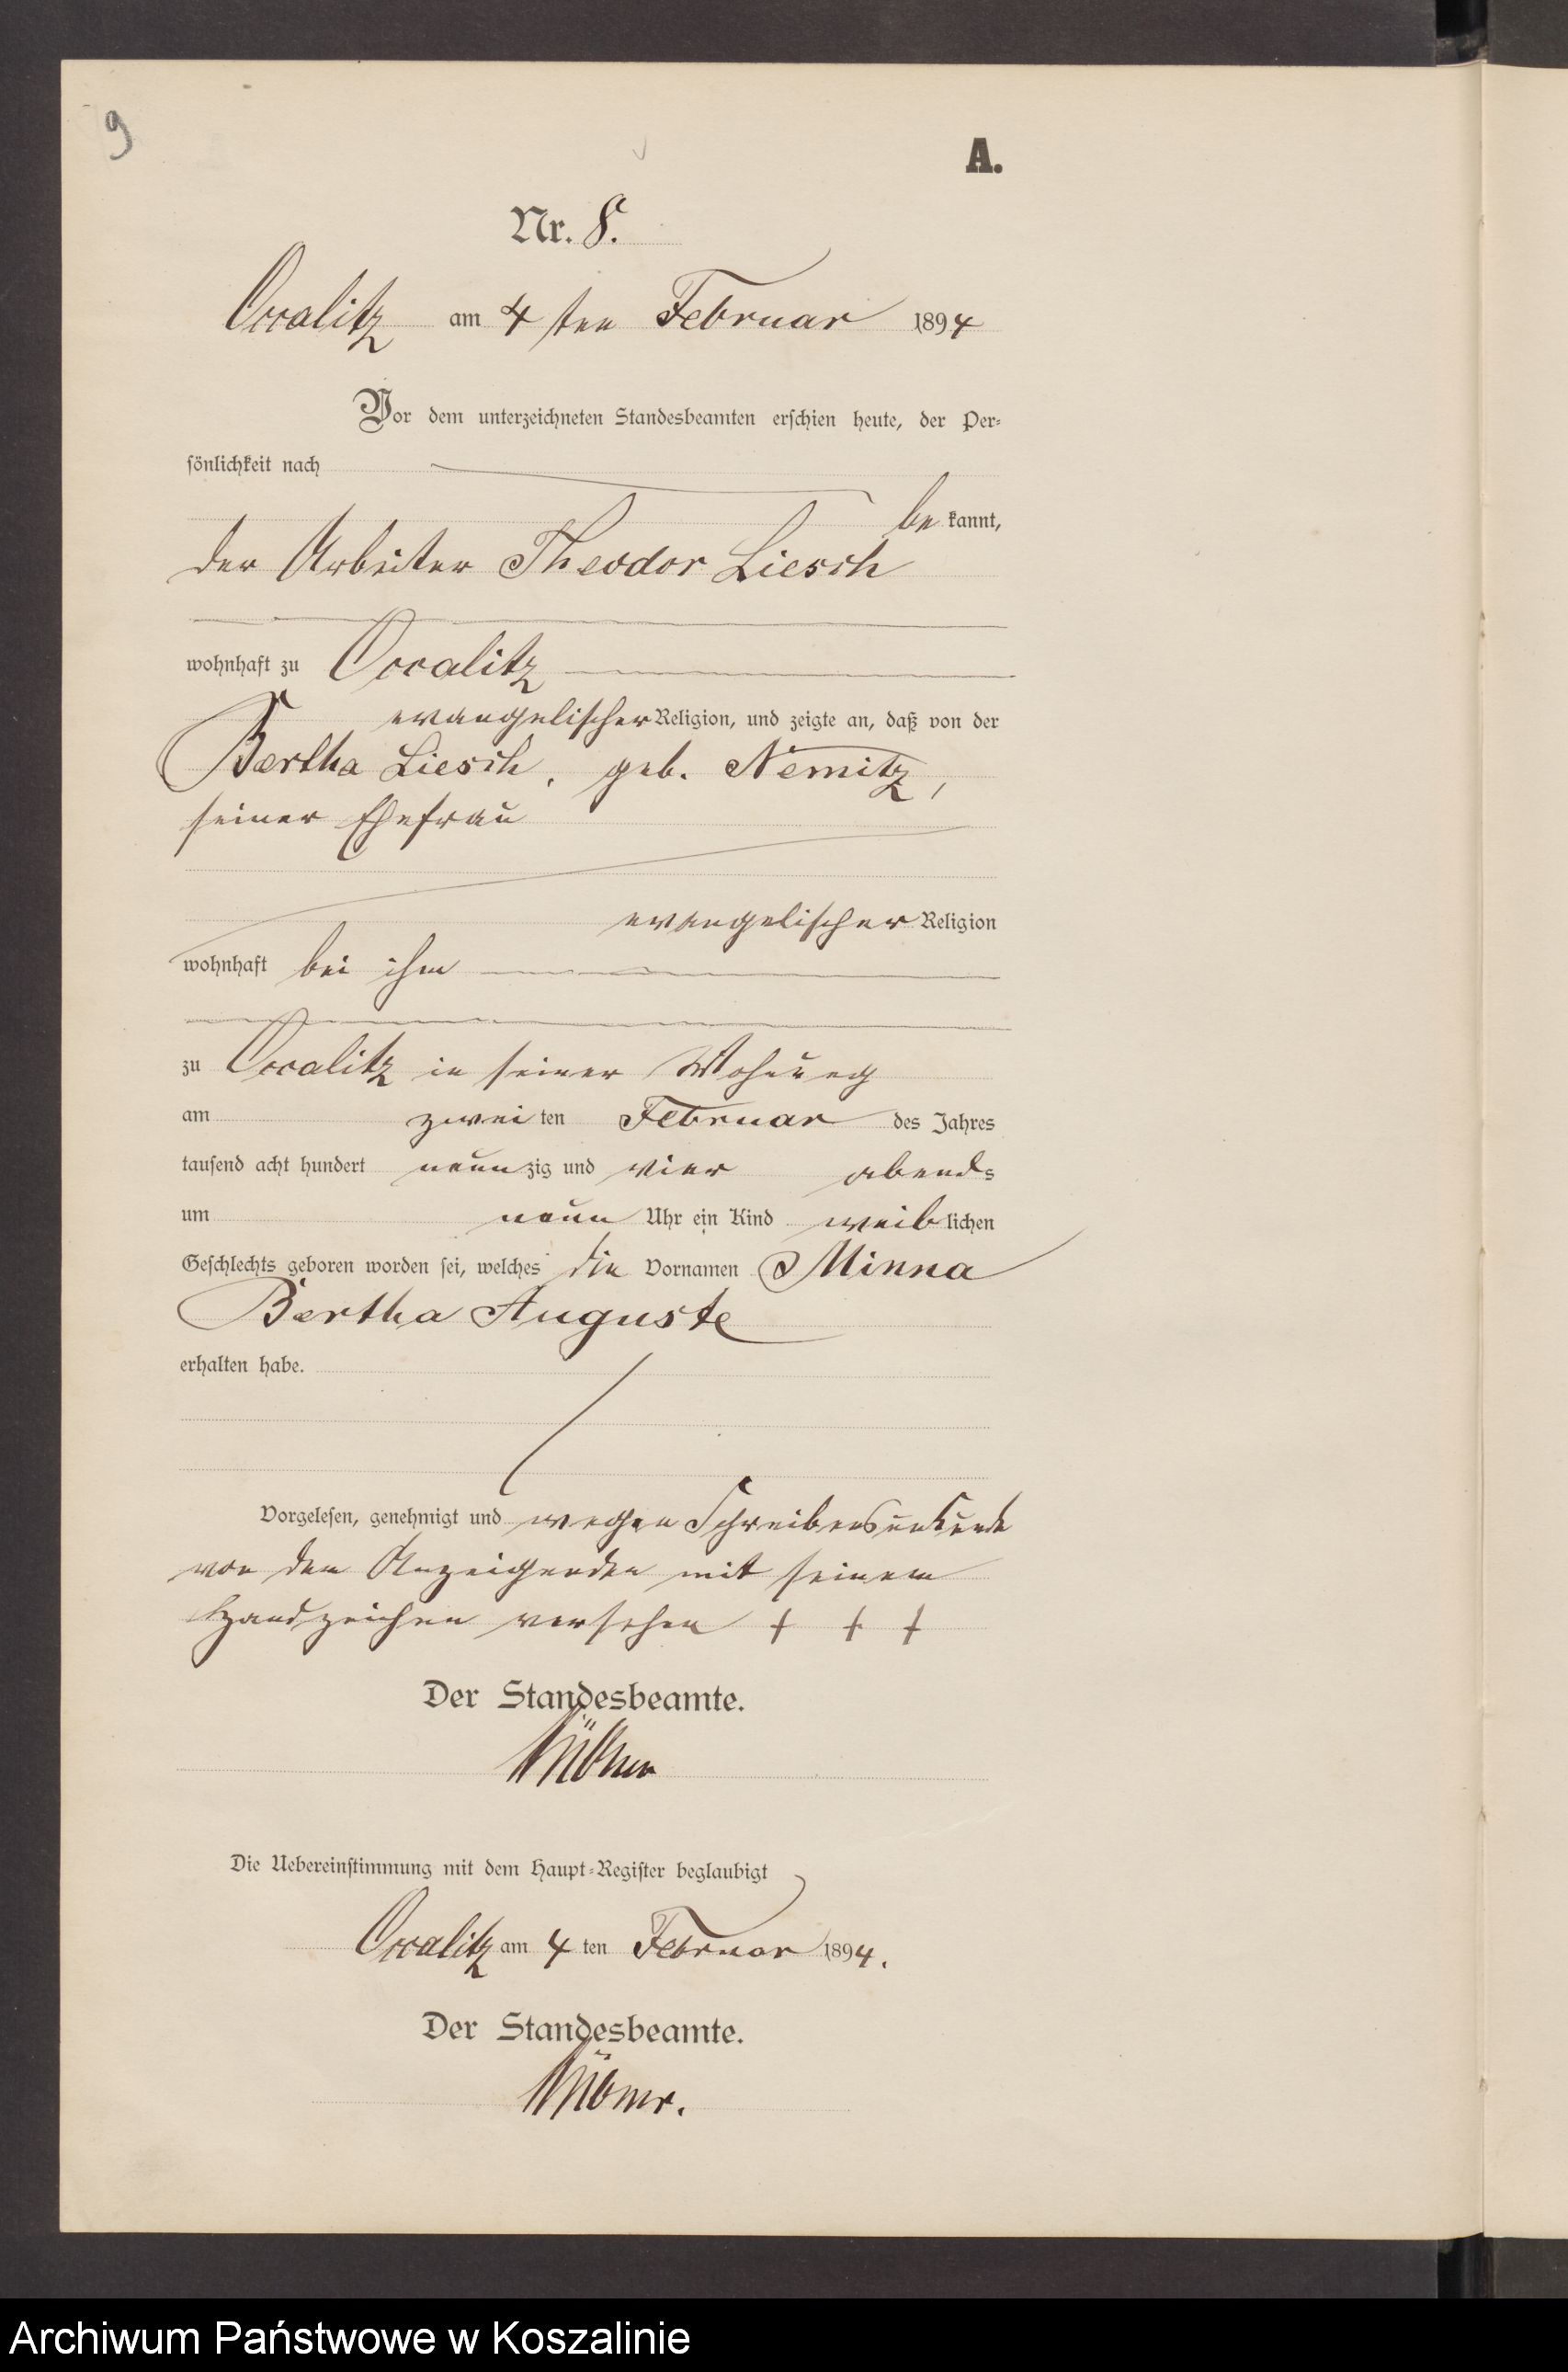 9
A.
Nr. 8.
Occalitz am 4 ten Februar 1894
Vor dem unterzeichneten Standesbeamten erschien heute, der Per-
sönlichkeit nach
be kannt,
der Arbeiter Theodor Liesch
wohnhaft zu Occalitz
evangelischer Religion, und zeigte an, daß von der
Bertha Liesch, geb. Nemitz,
seiner Ehefrau
evangelischer Religion
wohnhaft bei ihm
zu Occalitz in seiner Wohnung
am zwei ten Februar des Jahres
tausend acht hundert neun zig und vier abends
um neun Uhr ein Kind weib lichen
Geschlechts geboren worden sei, welches die Vornamen Minna
Bertha Auguste
erhalten habe.
Vorgelesen, genehmigt und wegen Schreibensunkunde
von dem Anzeigenden mit seinem
Handzeichen versehen + + +
Der Standesbeamte.
Die Uebereinstimmung mit dem Haupt-Register beglaubigt
Occalitz am 4 ten Februar 1894.
Der Standesbeamte.
Archiwum Państwowe w Koszalinie